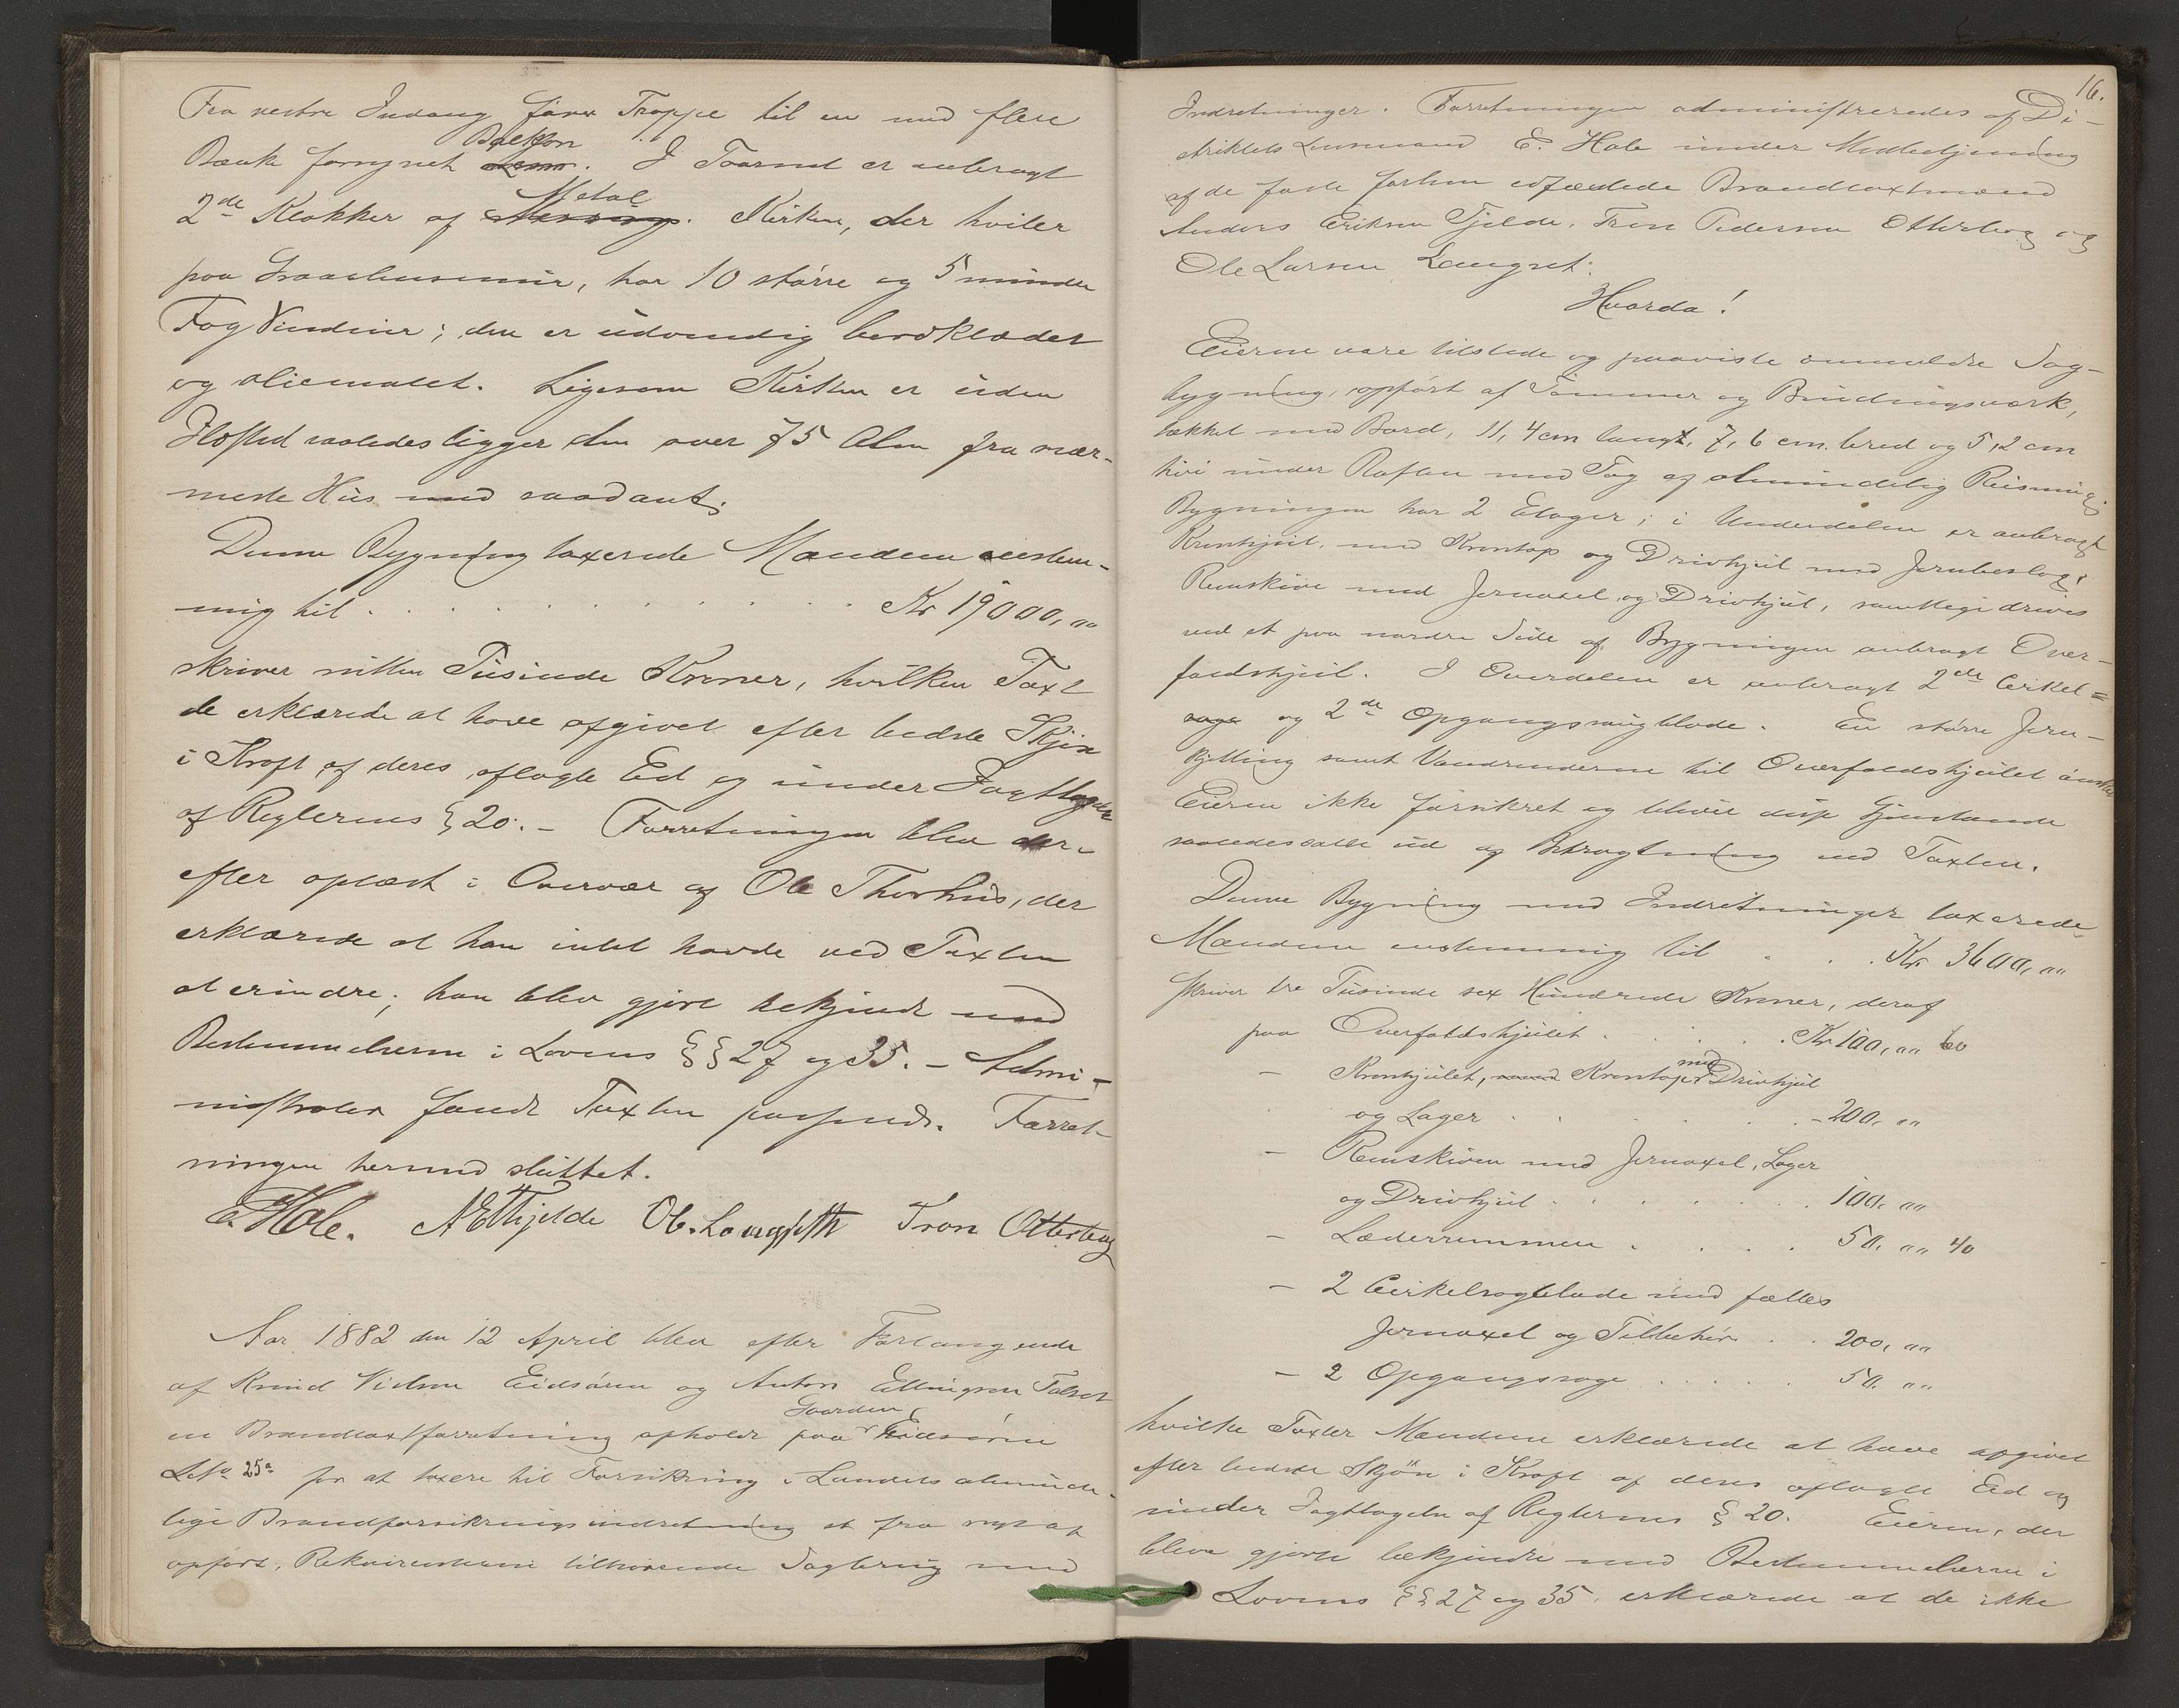 Fra vestre Indgang fører Trappe til en med flere
Bænke forsynet Balkon. I Taarnet er anbragt
2de Klokker af Metal. Kirken, der hviler
paa Graastensmur, har 10 større og 5 mindre
Fag Vinduer; den er udvendig bordklædet
og oliemalet. Ligesom Kirken er uden
Ildsted saaledes ligger den over 75 Alen fra nær-
meste Hus med saadant.
Denne Bygning taxerede Mændene eenstem-
mig til . . . . . . . . . . Kr 19000,""
skriver nitten Tusinde Kroner, hvilken Taxt
de erklærede at have afgivet efter bedste Skjøn
i Kraft af deres aflagte Ed og under Iagttagelse
af Reglernes § 20. – Forretningen blev der-
efter oplæst i Overvær af Ole Thorhus, der
erklærede at han intet havde ved Taxten
at erindre; han blev gjort bekjendt med
Bestemmelserne i Lovens §§ 27 og 35. – Admi-
nistrator fandt Taxten passende. Forret-
ningen hermed sluttet.
E. Hole. A E Tjelde Ol. Langseth Tron Otterbeg
Aar 1882 den 12 April blev efter Forlangende
af Knud Nielsen Eidsøren og Anton Ellingsen
en Brandtaxtforretning afholdt paa Gaarden Eidsøren
25a for at taxere til Forsikring i Landets alminde-
lige Brandforsikringsindretning et fra nyt af
opført, Rekvirenterne tilhørende Sagbrug med
16.
Indretninger. Forretningen administreredes af Di-
striktets Lensmand E. Hole under Medbetjening
af de faste forhen edfæstede Brandtaxtmænd
Anders Eriksen Tjelde, Tron Pedersen Otterbeg og
Ole Larsen Langset.
Hvorda!
Eierne vare tilstede og paaviste anmeldte Sag-
bygning, opført af Tømmer og Bindingsværk,
tækket med Bord, 11,4 cm langt, 7,6 cm. bred og 5,2 cm
høi under Raften med Tag af almindelig Reisning.
Bygningen har 2 Etager; i Underdelen er anbragt
Kronhjul, med Krontap og Drivhjul med Jernbeslag;
Remskive med Jernaxel og Drivhjul, samtlige drives
ved et paa nordre Side af Bygningen anbragt Over-
faldshjul. I Overdelen er anbragt 2de Cirkel=
sage og 2de Opgangssagblade. En større Jern-
kjetting samt Vandrenderne til Overfaldshjulet ønsker
Eierne ikke forsikret og bleve disse Gjenstande
saaledes ladt ud af Betragtning ved Taxten.
Denne Bygning med Indretninger taxerede
Mændene enstemmig til . . . Kr 3600,""
skriver tre Tusinde sex Hundrede Kroner, deraf
paa Overfaldshjulet . . . . . Kr 100,"" 60
– Kronhjulet, Krontap med Drivhjul
og Lager . . . . . . – 200,""
– Remskiven med Jernaxel, Lager
og Drivhjul . . . . . . 100,""
– Læderremmen . . . . 50,"" 40
– 2 Cirkelsagblade med fælles
Jernaxel og Tilbehør . . 200,""
– 2 Opgangssage . . . . . 50,""
hvilke Taxter Mændene erklærede at have afgivet
efter bedste Skjøn i Kraft af deres aflagte Ed og
under Iagttagelse af Reglernes § 20. Eierne, der
bleve gjorte bekjendte med Bestemmelserne i
Lovens §§ 27 og 35, erklærede at de ikke